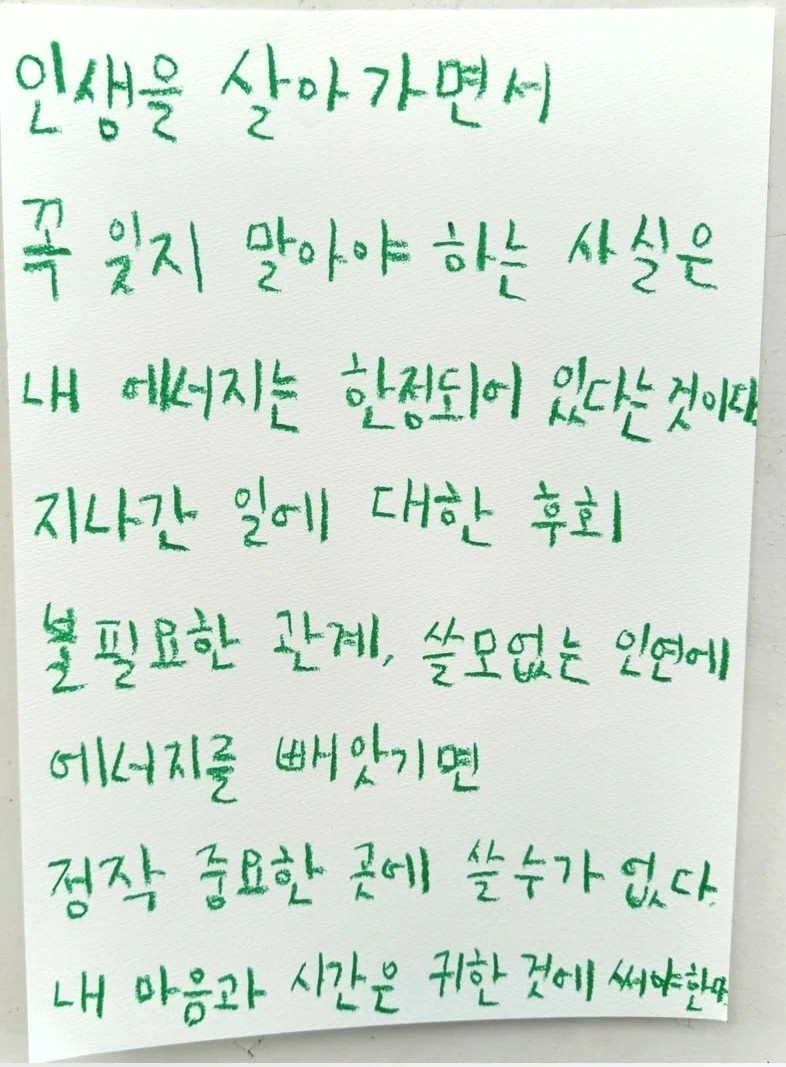 인생을 살아가면서
꼭 잊지 말아야 하는 사실은
내 에너지는 한정되어 있다는 것이다.
지나간 일에 대한 후회
불필요한 관계, 쓸모없는 인연에
에너지를 빼앗기면
정작 중요한 곳에 쓸 수가 없다.
내 마음과 시간은 귀한 것에 써야한다.